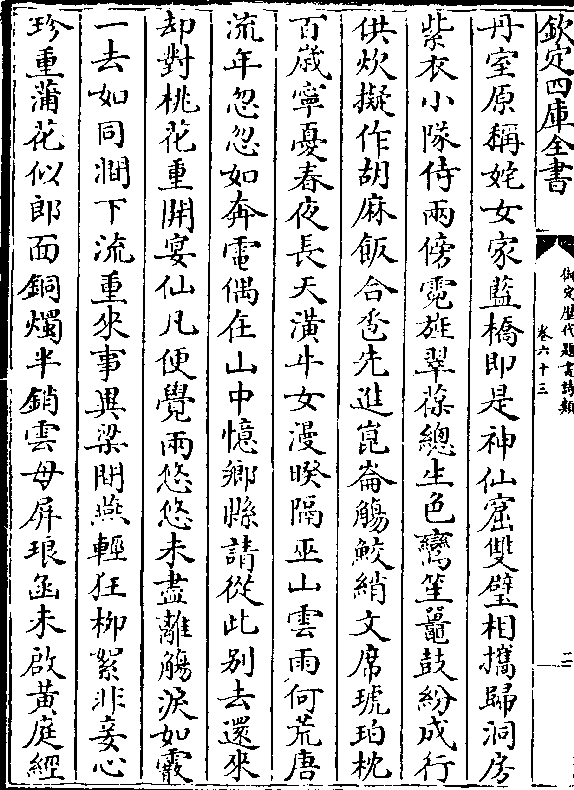 欽定四庫全書
御定歴代題畫詩類
卷六十三
二
丹室原稱姹女家藍橋即是神仙窟雙璧相攜歸洞房
紫衣小隊侍兩傍霓旌翠葆總生色鸞笙鼉鼓紛成行
供炊擬作胡麻飯合卺先進崑崙觴鮫綃文席琥珀枕
百歳寧憂春夜長天潢牛女漫暌隔巫山雲雨何荒唐
流年忽忽如奔電偶在山中憶鄉縣請從此别去還來
却對桃花重開宴仙凡便覺兩悠悠未盡離觴淚如霰
一去如同澗下流重來事異梁間燕輕狂柳絮非妾心
珍重蒲花似郎面銅燭半銷雲母屏琅函未啟黄庭經